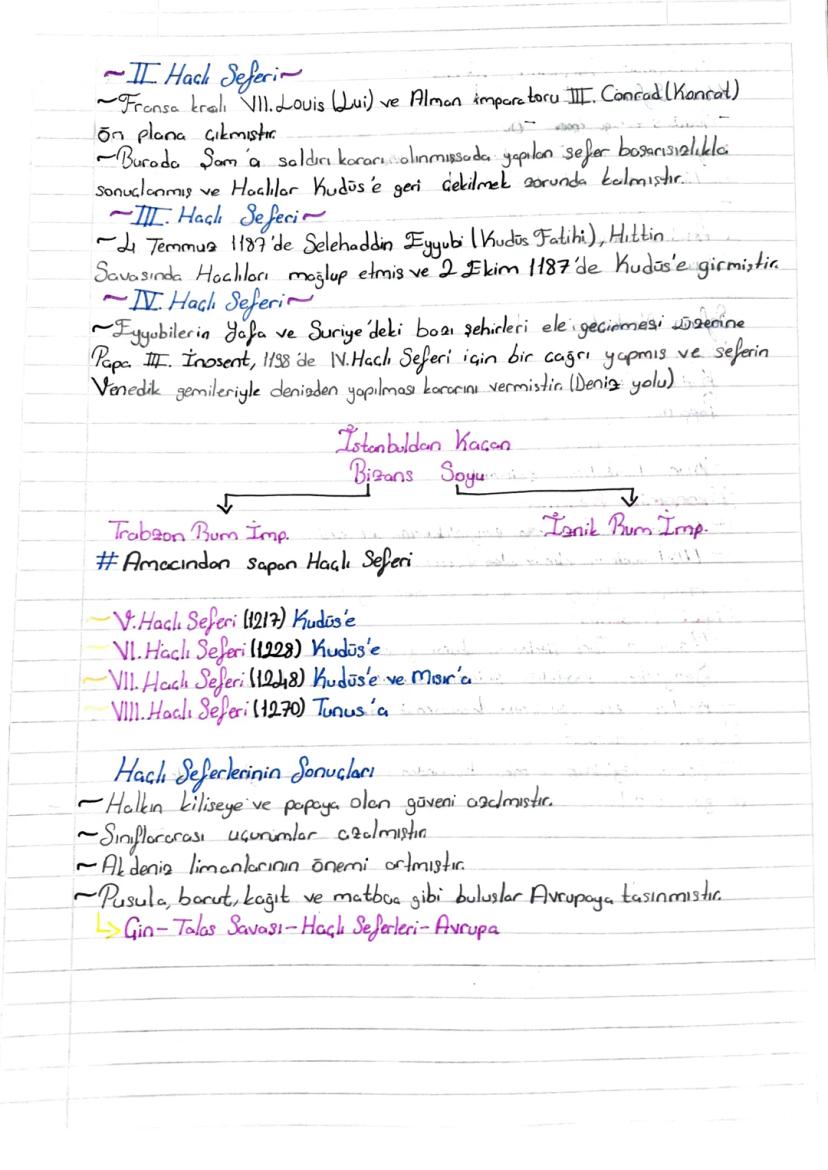 ~II. Haçlı Seferi~
~Fransa kralı VII. Louis (Lui) ve Alman imparatoru III. Conrad (Konrat)
ön plana çıkmıştır.
~Burada Şam'a saldırı kararı alınmışsada yapılan sefer başarısızlıkla
sonuçlanmış ve Haçlılar Kudüs'e geri çekilmek zorunda kalmıştır.
~III. Haçlı Seferi~
~4 Temmuz 1187'de Selehaddin Eyyubi (Kudüs Fatihi), Hıttin
Savaşında Haçlıları mağlup etmiş ve 2 Ekim 1187'de Kudüs'e girmiştir.
~IV. Haçlı Seferi~
~Eyyubilerin Yafa ve Suriye'deki bazı şehirleri ele geçirmesi üzerine
Papa III. İnosent, 1198'de IV. Haçlı Seferi için bir çağrı yapmış ve seferin
Venedik gemileriyle denizden yapılması kararını vermiştir. (Deniz yolu)
İstanbuldan Kaçan
Bizans Soyu
Trabzon Rum İmp. İznik Rum İmp.
# Amacından sapan Haçlı Seferi
~V. Haçlı Seferi (1217) Kudüs'e
~VI. Haçlı Seferi (1228) Kudüs'e
~VII. Haçlı Seferi (1248) Kudüs'e ve Mısır'a
~VIII. Haçlı Seferi (1270) Tunus'a
Haçlı Seferlerinin Sonuçları
~Halkın kiliseye ve papaya olan güveni azalmıştır.
~Sınıflararası uçurumlar azalmıştır.
~Akdeniz limanlarının önemi artmıştır.
~Pusula, barut, kağıt ve matbaa gibi buluşlar Avrupaya taşınmıştır.
↳ Çin - Talas Savaşı - Haçlı Seferleri - Avrupa